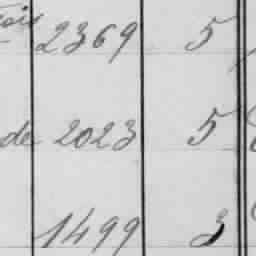 2369 5
de 2023 5
1499 3